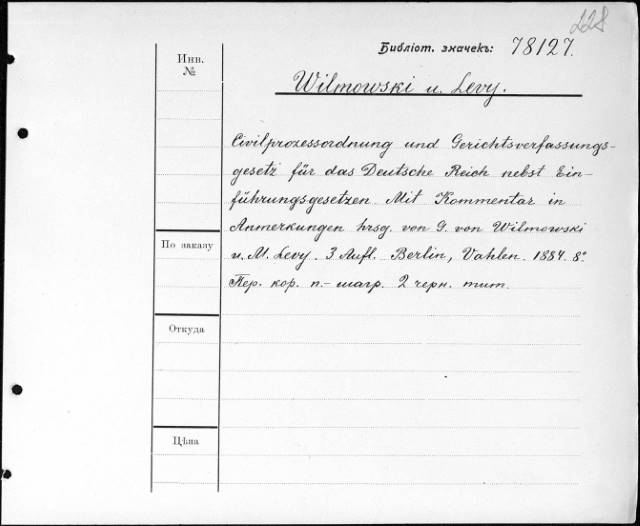 228
Библіот. значекъ: 78127.
Инв.
№
Wilmowski u. Levy.
Civilprozessordnung und Gerichtsverfassungs-
gesetz für das Deutsche Reich nebst Ein-
führungsgesetzen. Mit Kommentar in
Anmerkungen hrsg. von G. von Wilmowski
u. M. Levy. 3 Aufl. Berlin, Vahlen. 1884. 8°.
Пер. кор. п.-шагр. 2 черн. тит.
По заказу
Откуда
Цѣна